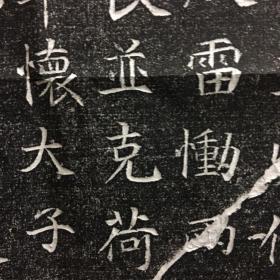 雷慟雨
並克荷
懷大子